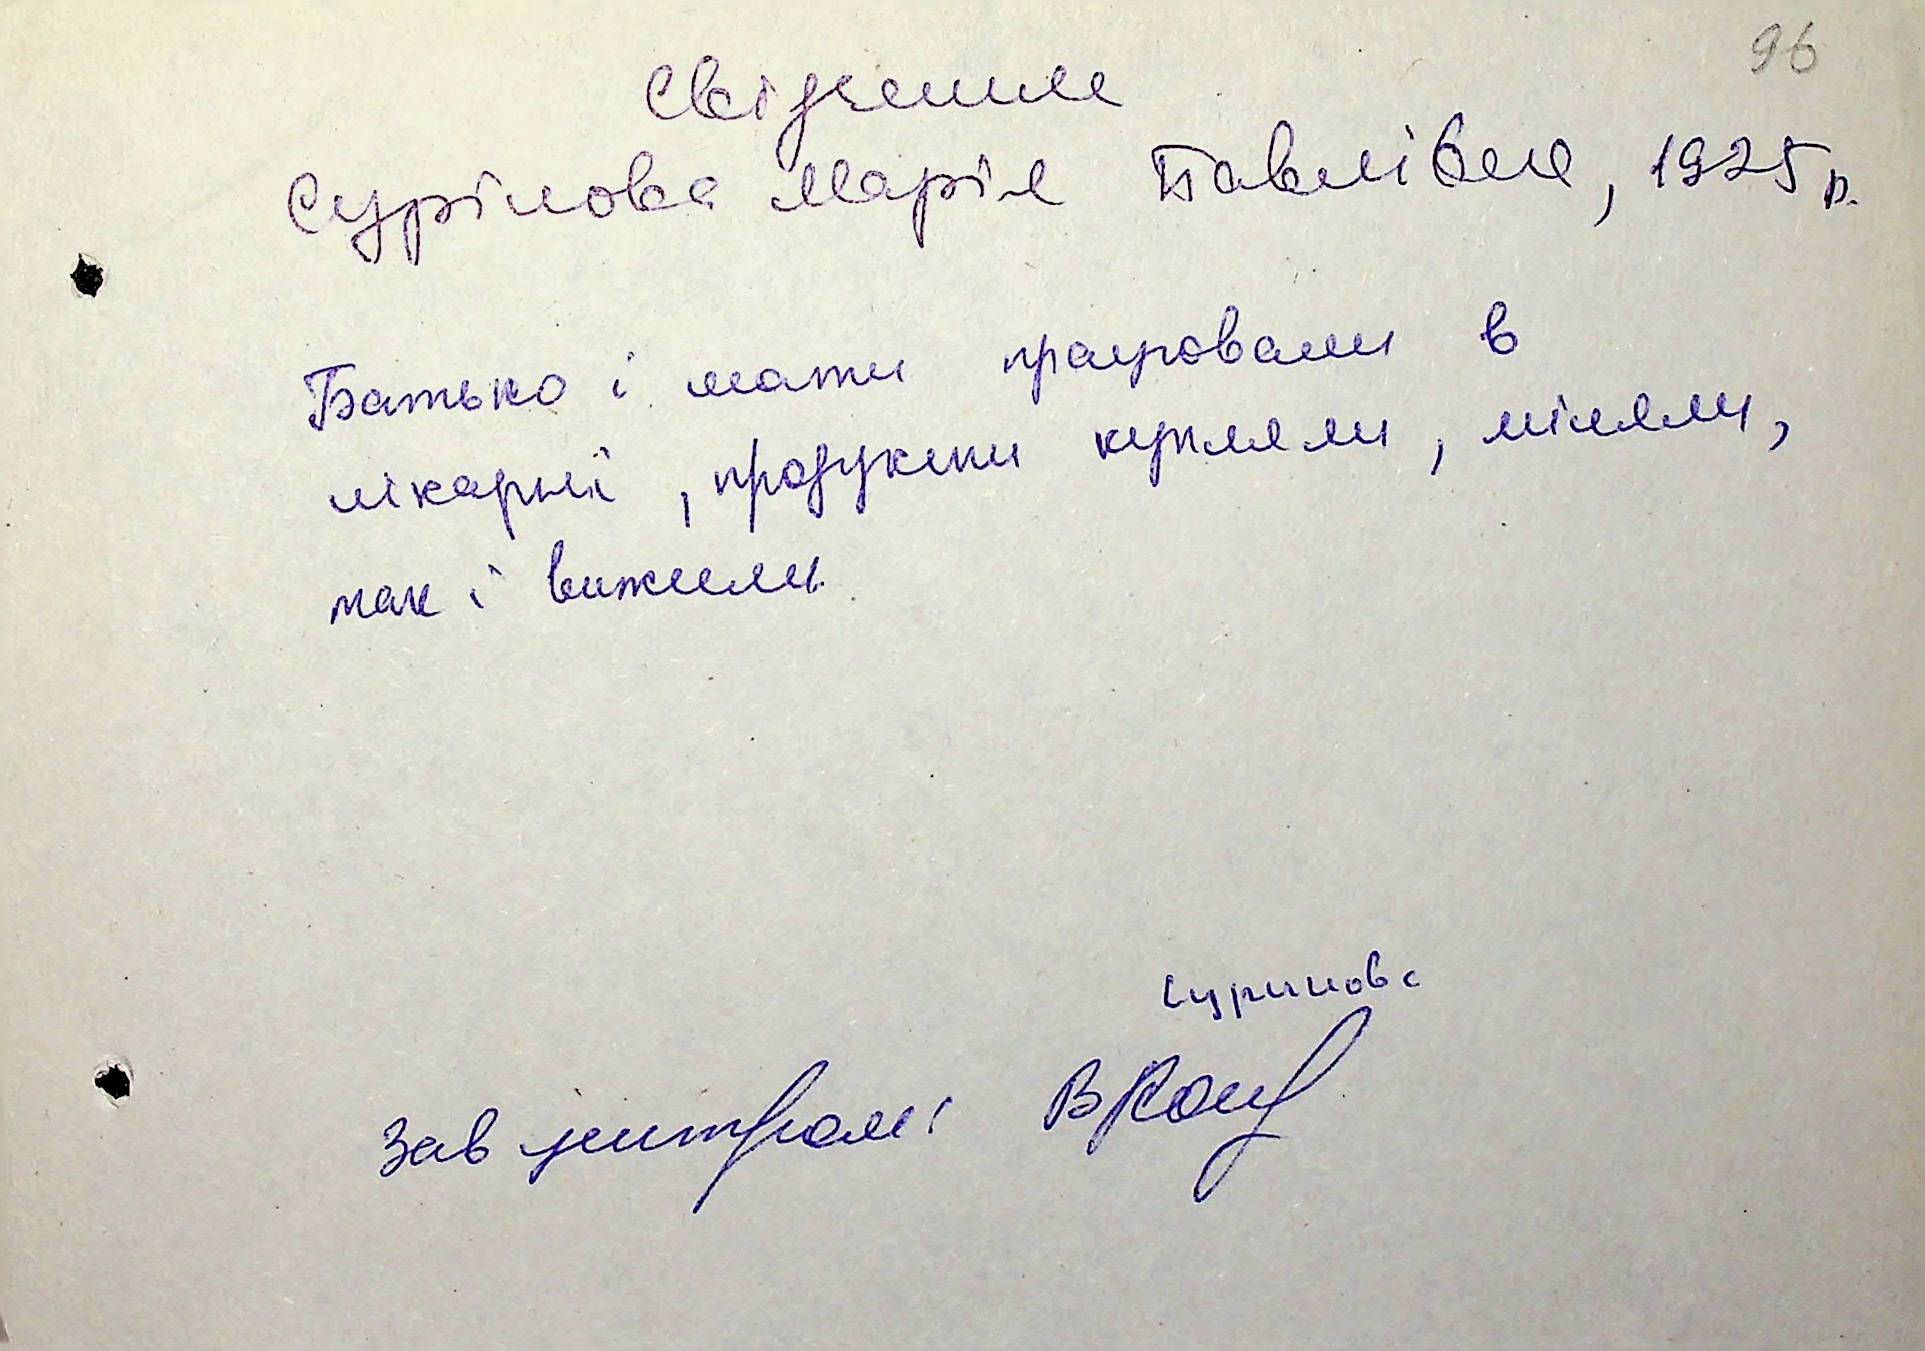 96
Свідчення
Сурінова Марія Павлівна, 1925 р.
Батько і мати працювали в
лікарні, продукти купляли, міняли,
так і вижили.
Суринова
Зав центром: